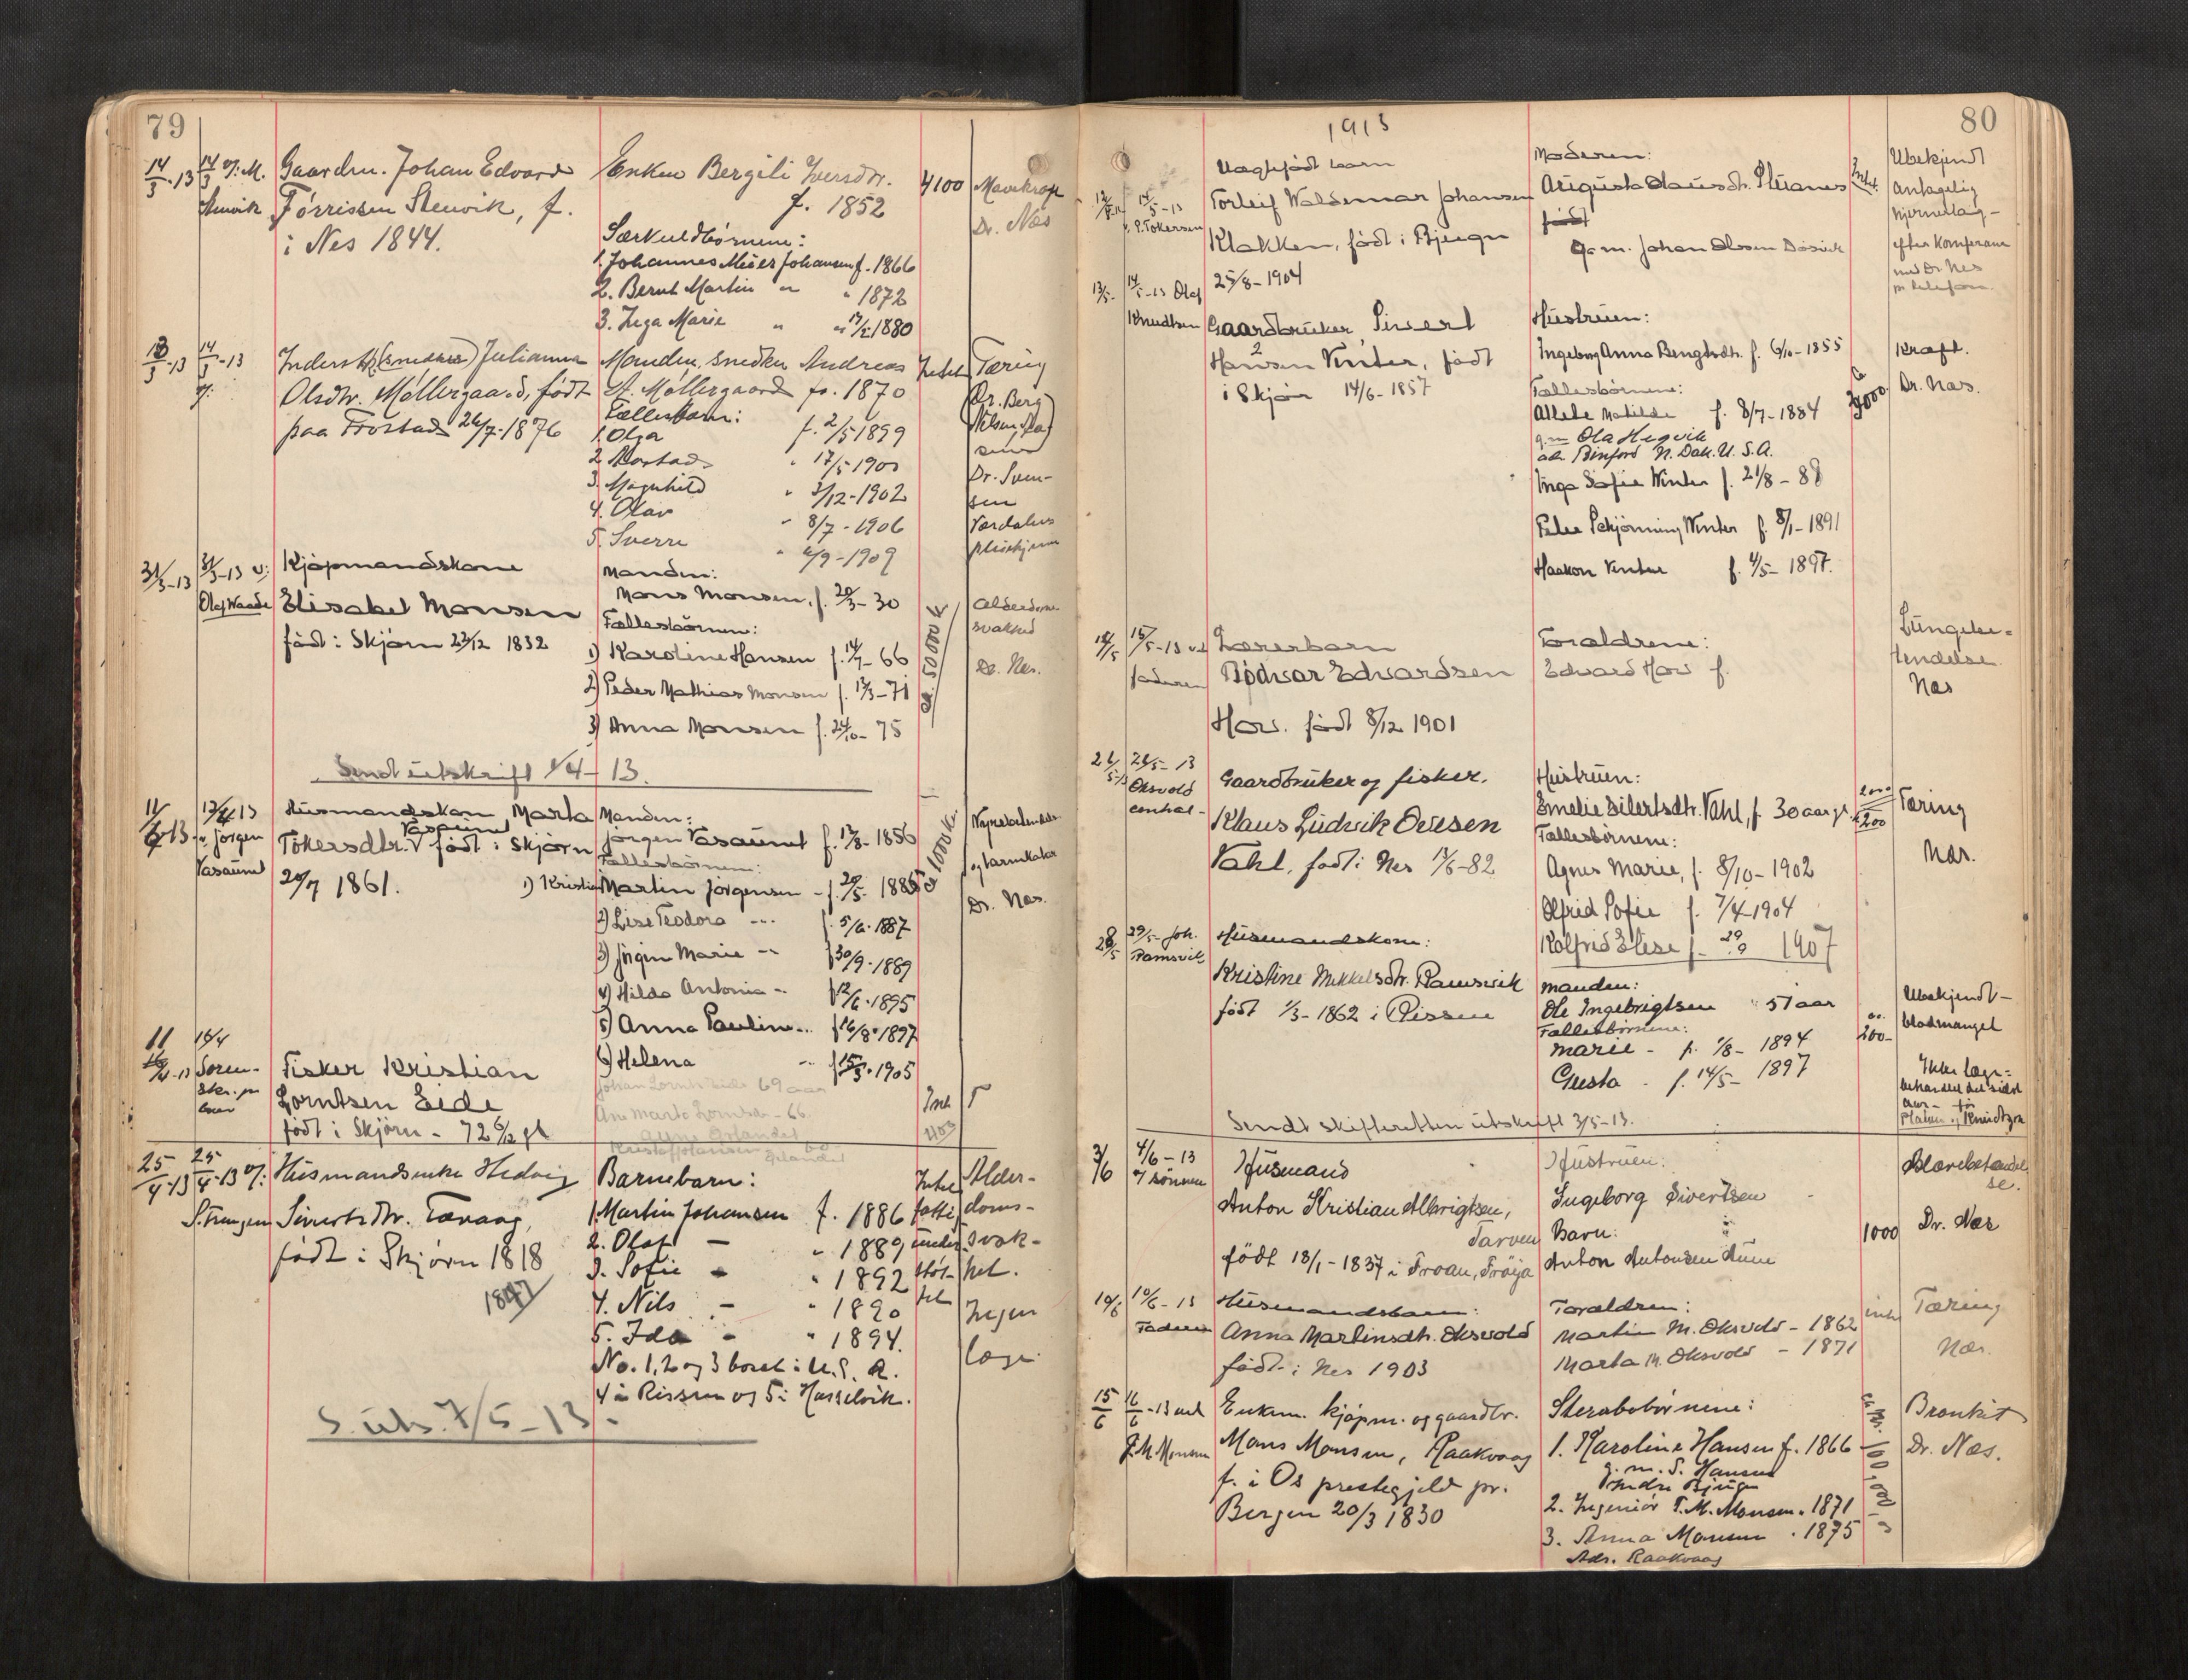 79
14/3-13 14/3 v/: M. Gaardm. Johan Edvard Enken Bergili Iversdtr. 4100 Mavekræft
Stenvik Tørrissen Stenvik, f. f. 1852 Dr. Næs
i Nes 1844. Særkuldbörnene:
1. Johannes Meier Johansen f. 1866
2. Bernt Martin " " 1872
3. Inga Marie " " 1880
13/3-13 14/3-13 Inderst (snedker) Julianna Manden, snedker Andreas Intet Tæring
v/: Olsdtr. Möllergaard, født St. Möllergaard fø. 1870 Dr. Berg
paa Frostad 26/7-1876 Fællesbarn: Nilsen,
1. Olga f. 2/5 1899
2. " 17/5 1900 Dr. Svend-
3. Magnhild " 3/12-1902 sen
4. Olav " 8/7-1906 Værdalens
5. Sverre " 4/9-1909 pleiehjem
31/3-13 31/3-13 v: Kjøpmandskone Manden:
Olaf Waade Elisabet Monsen Mons Monsen, f. 20/3-30 Alderdoms
født i Skjörn 23/12 1832 Fællesbörnene: svakhed
1) Karoline Hansen f. 14/7-66 50000 Kr Dr. Nes.
2) Peder Mathias Monsen f. 13/3-71
3) Anna Monsen f. 24/10-75
Sendt utskrift 1/4-13.
11/4 13 12/4 13 Husmandskon Marta Manden:
v. Jørgen Tokersdtr. Vasaunet født i Skjörn Jørgen Vasaunet f. 1856 1000 Kr
Vasaunet 20/7 1861. Fællesbörnene: og tarmkatar
1) Kristian Martin Jørgensen - f. 1885 Dr. Næs.
2) Lise Teodora - " f. 5/6-1887
3) Jørgine Marie - " f 30/9-1889
4) Hilda Antonia - " f 12/6-1895
5) Anna Pauline - " f 16/8-1897
6) Helena - " f 1905
11 15/4
Soren- Fisker Kristian Johan Lornts Eide 69 aar
Lorntsen Eide Ane Marta Lorntsdtr - 66 Int
født i Skjörn - 72 6/12 gl
25/4-13 25/4-13 v/: Husmandsenke Hedvig Barnebarn: Intet Alder-
S. Frengen Sivertsdtr. født i Skjörn 1818 1. Martin Johansen f. 1886 fattig doms-
2. Olaf - " 1889 under svak-
3. Sofie - " 1892 støt- het.
1847 4. Nils - " 1890 tet Ingen
5. Ida - " 1894. læge
No. 1, 2 og 3 bosat i U. S. A.
4 i Rissen og 5 i Hasselvik.
S. uts. 7/5-13.
1913
80
Uægtefødt barn Moderen: Ubekjendt
Torleif Waldemar Johansen Augusta Clausdtr. Intet antagelig
v. P. Tokersen Klakken, født i Bjugn født hjerneslag-
25/8-1904 G. m. Johan Olsen efter konferanse
med Dr. Nes
pr. telefon.
13/5- 14/5-13 Olaf
Knudtsen Gaardbruker Sivert Hustruen:
Hansen Vinter, født Ingeborg Anna Bengtsdtr. f. 6/10-1855 Kræft.
i Skjörn 14/6-1857 Fællesbörnene: Dr. Næs.
Matilde f. 8/7-1884
g. m. Ola Hegvik
adr. Binford N. Dak. U. S. A.
Inga Sofie Winter f. 21/8-88
Peder Schjönning Winter f. 8/1-1891
Haakon Vinter f. 4/5-1897.
15/5-13 v. Lærerbarn Forældrene: Lungebe-
faderen Bödvar Edvardsen Edvard Hov f. tendelse.
Hov. født 8/12 1901 Næs
26/5-13 Gaardbruker og fisker. Hustruen:
Oksvold Klaus Ludvik Ovesen Emelie Eilertsdtr. Vahl, f. 30 aar gl. 200 Tæring
Vahl, født i Nes -82 Fællesbörnene: Næs.
Agnes Marie, f. 8/10-1902
Olfrid Sofie f. 7/4-1904
Rolfrid Elise f. 29/9 1907
28/5 29/5- Joh. Husmandskone:
Ramsvik Kristine Mikkelsdtr. Ramsvik Manden: Ubekjendt-
født 1/3-1862 i Rissen Ole Ingebrigtsen 51 aar blodmangel
Fællesbörnene: 200-
Marie - f. 1/8-1894 Ikke læge-
Gusta - f. 14/5-1897 behandlet det sidste
aar-
Sendt skifteretten utskrift 3/5-13.
3/6 4/6-13 Husmand Hustruen: Blærebetændel
v/ sönnen Anton Kristian Albrigtsen, Ingeborg Sivertsen se.
Tarven Barn: 1000 Dr. Næs
født 18/1-1837 i Froan, Fröya Anton Antonsen Aune
10/6 10/6-13 Husmandsbarn: Forældren: Tæring
Faderen Anna Martinsdtr. Oksvold Martin M. Oksvold - 1862 intet
født i Nes 1903 Marta M. Oksvold - 1871 Næs.
15/6 16/6-13 ved Enkem. kjöpm. og gaardbr. Sterbobörnene: ca. kr. 100,000,- Bronkit
P. M. Monsen Mons Monsen, Raakvaag 1. Karoline Hansen f. 1866 Dr. Næs.
f. i Os prestegjeld pr. g. m. S. Hansen
Bergen 20/3 1830 Indre Bjugn
2. Ingeniör P. M. Monsen " 1871
3. Anna Monsen " 1875
Adr. Raakvaag